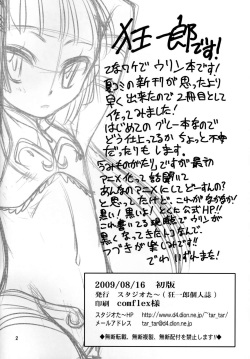 狂一郎です!
てなワケでウリン本です!
夏コミの新刊が思ったより
早く出来たので2冊目として
作ってみました!
はじめてのグレー本なので
どう仕上ってるかちょっと不安
だったりもします。
うみものがたり、ですが最初
アニメ化って話聞いて
あんなのアニメにしてどーすんの?
と思ってたけど、これがなかなか!
黒い!黒いよ!とくに公式HP!!
これ書いてる時点でウリンが
黒くなってきたトコなんで、
つづきが楽しみです!!
2009/08/16 初版
発行 スタジオた~(狂一郎個人誌)
印刷 comflex様
スタジオた~HP http://www.d4.dion.ne.jp/~tar_tar/
メールアドレス tar_tar@d4.dion.ne.jp
◆無断転載、無断複製、無断配付を禁止します!◆
2